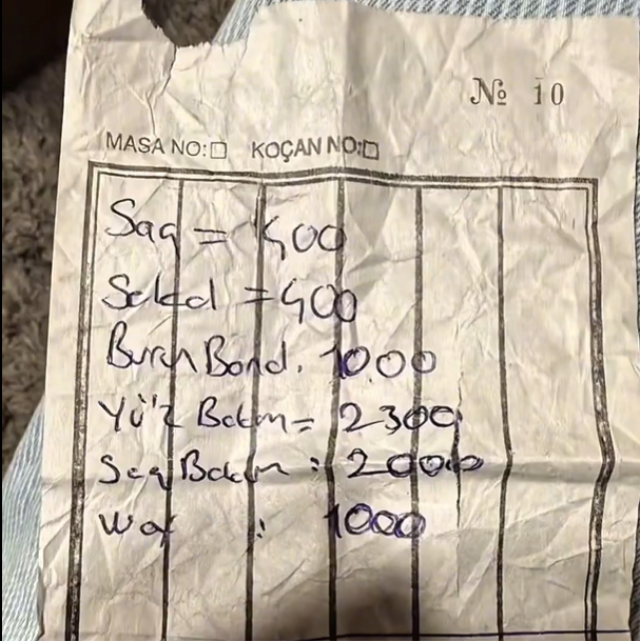 № 10
MASA NO:□ KOÇAN NO:□
Saq = 500
Sakal = 400
Burun Band. 1000
Yüz Bakım = 2300
Saq Bakım : 2000
Wax : 1000